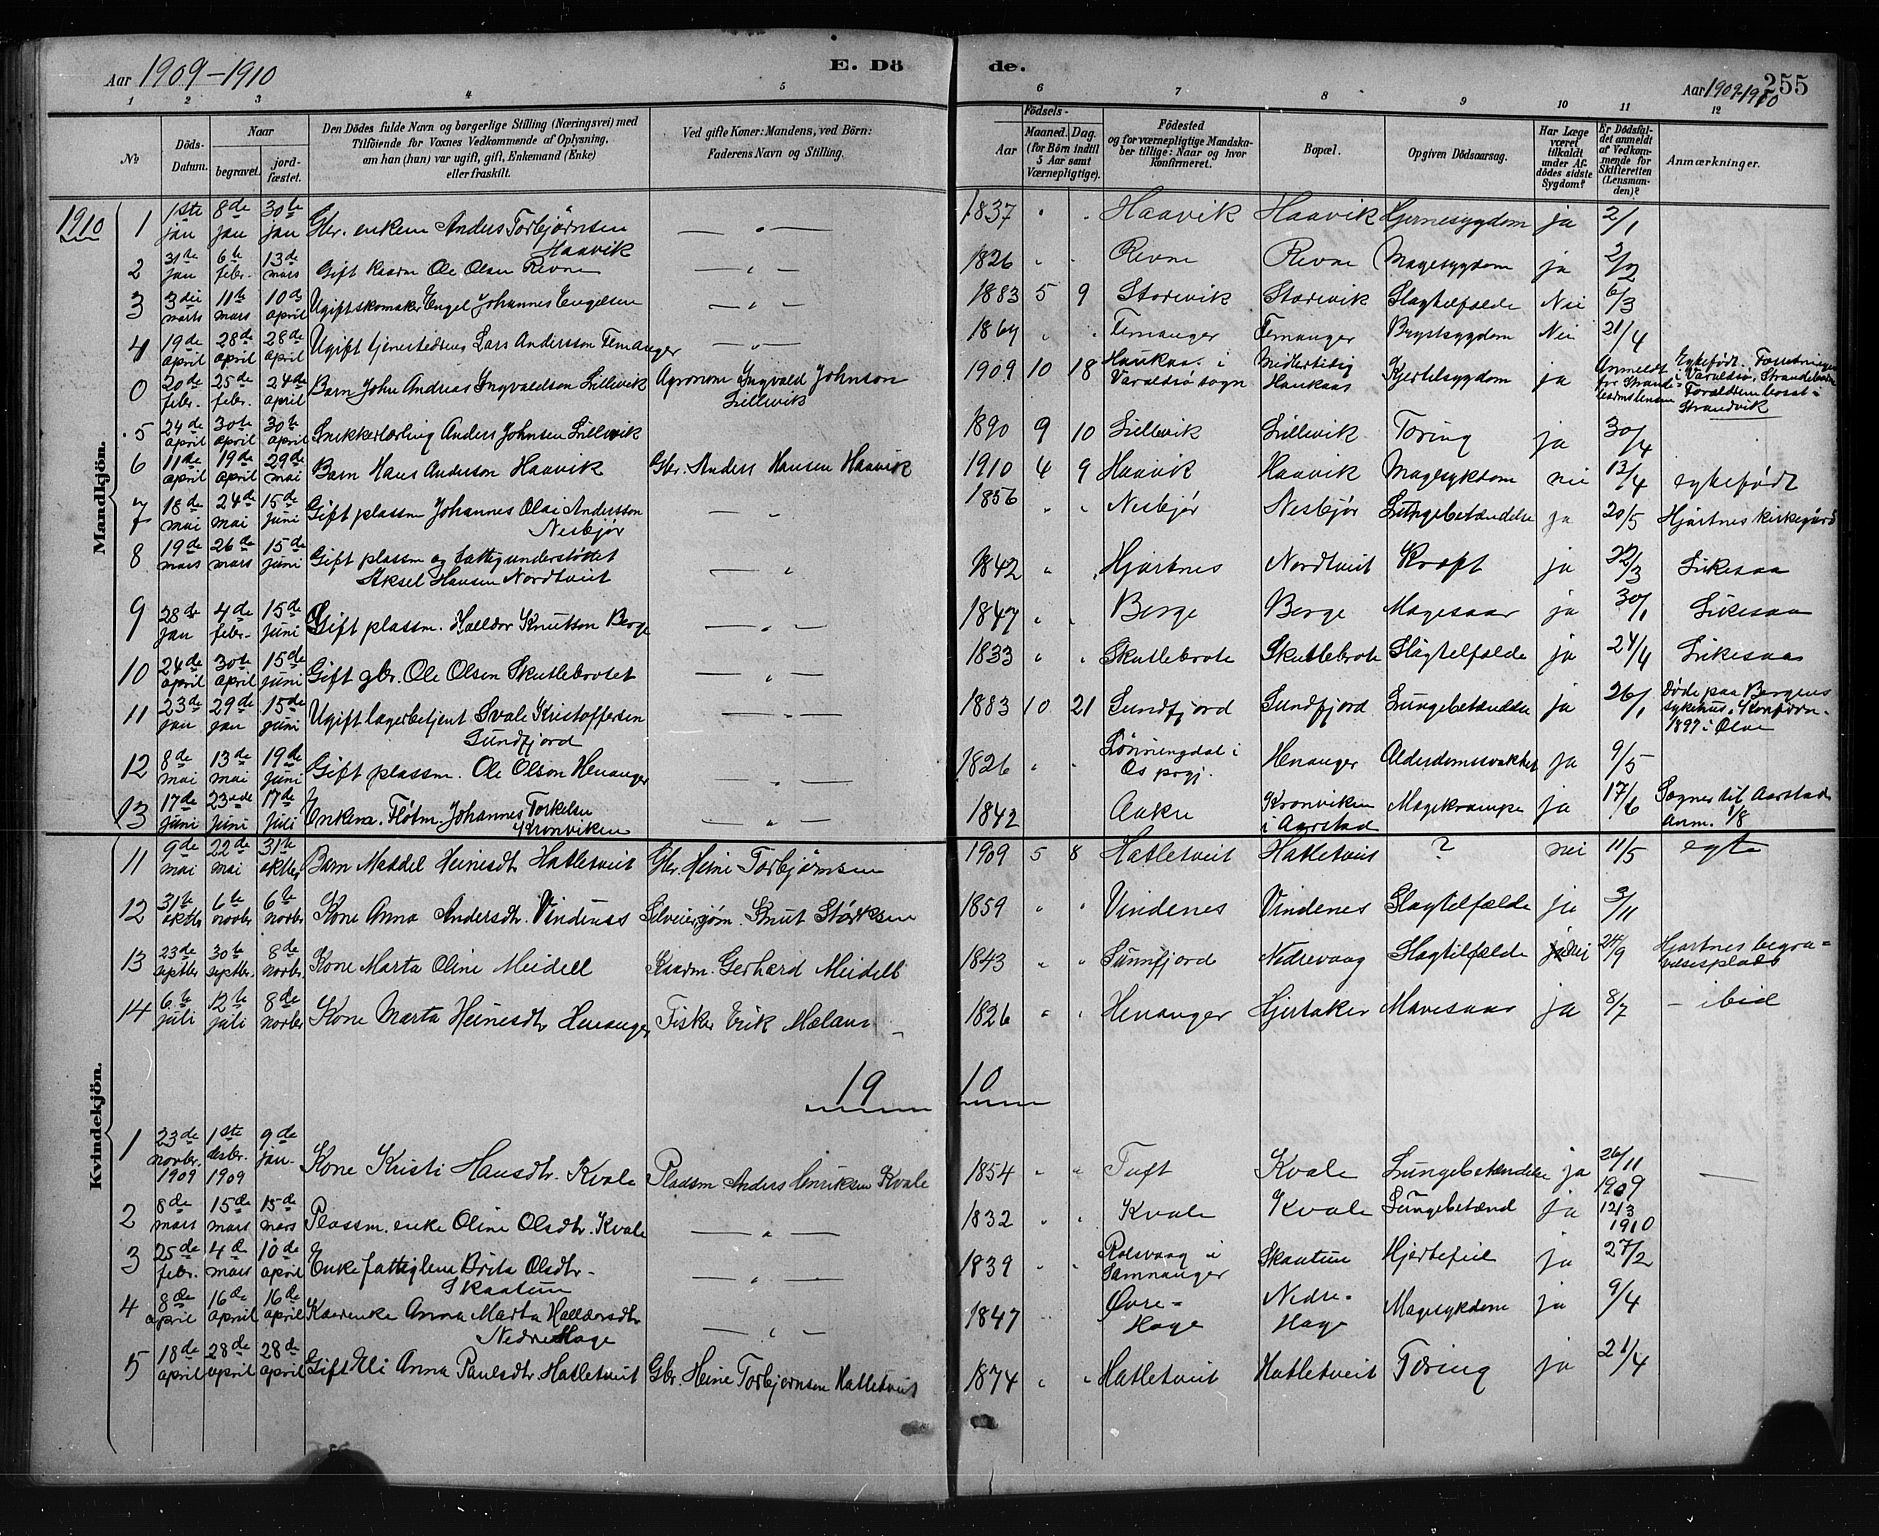 Aar 1909-1910
E. Dö
de.
Aar 1909-1910
255
1 2 3 4 5 6 7 8 9 10 11 12
№
Döds-Datum.
Naar
begravet.
jord-fæstet.
Den Dödes fulde Navn og borgerlige Stilling (Næringsvei) med
Tilföiende for Voxnes Vedkommende af Oplysning,
om han (hun) var ugift, gift, Enkemand (Enke)
eller fraskilt.
Ved gifte Koner: Mandens, ved Börn:
Faderens Navn og Stilling.
Födsels-
Aar
Maaned. Dag.
(for Börn indtil
5 Aar samt
Værnepligtige).
Födested
og for værnepligtige Mandska-
ber tillige: Naar og hvor
konfirmeret.
Bopæl.
Opgiven Dödsaarsag.
Har Læge
været
tilkaldt
under Af-
dödes sidste
Sygdom?
Er Dödsfal-
det anmeldt
af Vedkom-
mende for
Skifteretten
(Lensman-
den)?
Anmærkninger.
Mandkjön.
1910
1 1ste jan 8de jan 30te jan Gbr. enkem Anders Torbjørnsen Haavik — " — 1837 " " Haavik Haavik Hjernesygdom ja 2/1
2 31te jan 6te febr. 13de mars Gift kaarm Ole Olsen Revne — " — 1826 " " Revne Revne Magesygdom ja 2/2
3 3dei marts 11te mars 10de april Ugift skomaker Engel Johannes Engelsen — " — 1883 5 9 Storevik Storevik Slagtilfælde Nei 6/3
4 19de april 28de april 28de april Ugift tjenestedreng Lars Andersson Femanger — " — 1864 " " Femanger Femanger Brystsygdom Nei 21/4
0 20de febr. 25de febr. 24de april Barn John Andreas Ingvaldson Lillevik Agronom Ingvald Johnson Lillevik 1909 10 18 Haukaas i Varaldsø sogn Midlertidig Haukaas Kjertelsygdom ja Anmeldt for Strande- Egtefødt. i Varaldsø, Strandebarm Strandvik
5 24de april 30te april 30te april Snikkerlærling Anders Johnsen Lillevik 1890 9 10 Lillevik Lillevik Tæring ja 30/4
6 11de april 19de april 29de mai Barn Hans Anderson Haavik Gbr. Anders Hansen Haavik 1910 4 9 Haavik Haavik Magesykdom nei 12/4 egtefødt
7 18de mai 24de mai 15de juni Gift plassm Johannes Olai Andersson Nesbjør — " — 1856 " " Nesbjør Nesbjør Lungebetændelse ja 20/5 Hjartnes kirkegård
8 19de mars 26de mars 15de juni Gift plassm og fattigunderstøttet Aksel Hansen Nordtveit — " — 1842 " " Hjartnes Nordtveit Kræft ja 22/3 Likesaa
9 28de jan 4de febr. 15de juni Gift plassm. Halldor Knutson Berge — " — 1847 " " Berge Berge Magesaar ja 30/1 Likesaa
10 24de april 30te april 15de juni Gift gbr. Ole Olsen Skutlebrotet — " — 1833 " " Skutlebrote Skutlebrote Slagtilfælde ja 24/4 Likesaa
11 23de jan 29de jan 15de juni Ugift lagerbetjent Svale Kristoffersen Sundfjord — " — 1883 10 21 Sundfjord Sundfjord Lungebetændelse ja 26/1 Døde paa Bergens sykehus. Konfirm. 1897 i Ølve
12 8de mai 13de mai 19de juni Gift plassm. Ole Olson Henanger — " — 1826 " " Lønningdal i Os prgj. Henanger Alderdomssvakhet ja 9/5
13 17de juni 23de juni 17de juli Enkem. Fløtm. Johannes Torkelsen Kronviken — " — 1842 Aakre Kronviken i Aarstad Magekrampe ja 17/6 Sogner til Aarstad Anm. 1/8
Kvindekjön.
11 9de mai 22de mai 31te oktbr Barn Heinesdtr Hatletveit Gbr. Heine Torbjørnsen 1909 5 8 Hatletveit Hatletveit ? nei 11/5 egte
12 31te oktbr 6te novbr 6te novbr Kone Anna Andersdtr. Vindenes Selveiersgm. Knut Størksen 1859 " " Vindenes Vindenes Slagtilfælde ja 3/11
13 23de septbr 30te septbr 8de novbr Kone Marta Oline Meidell Kaarm. Gerhard Meidell 1843 " " Sunnfjord Nedrevaag Slagtilfælde nei 24/9 Hjartnes begra-velsesplads
14 6te juli 12te juli 8de novbr Kone Marta Heinesdtr Henanger Fisker Erik Mæland 1826 " " Henanger Gjertaker Mavesaar ja 8/7 — ibid
19 10
1 23de novbr. 1909 1ste desbr. 1909 9de jan. Kone Kristi Hansdtr. Kvale Pladsm Anders Henriksen Kvale 1854 " " Tuft Kvale Lungebetændelse ja 26/11 1909 —
2 8de mars 15de mars 15de mars Plassm. enke Oline Olsdtr. Kvale — " — 1832 " " Kvale Kvale Lungebetænd ja 12/3 1910
3 25de febr. 4de mars 10de april Enke fattiglem Brita Olsdtr. Skaatun — " — 1839 " " Rolsvaag i Samnanger Skaatun Hjertefeil ja 27/2
4 8de april 16de april 16de april Kaarenke Anna Marta Halldorsdtr Nedre Hage — " — 1847 " Øvre-Hage Nedre-Hage Magesykdom ja 9/4
5 18de april 28de april 28de april Gift Eli Anna Paulsdtr Hatletveit Gbr. Heine Torbjørnsen Hatletveit 1874 " " Hatletveit Hatletveit Tæring ja 21/4